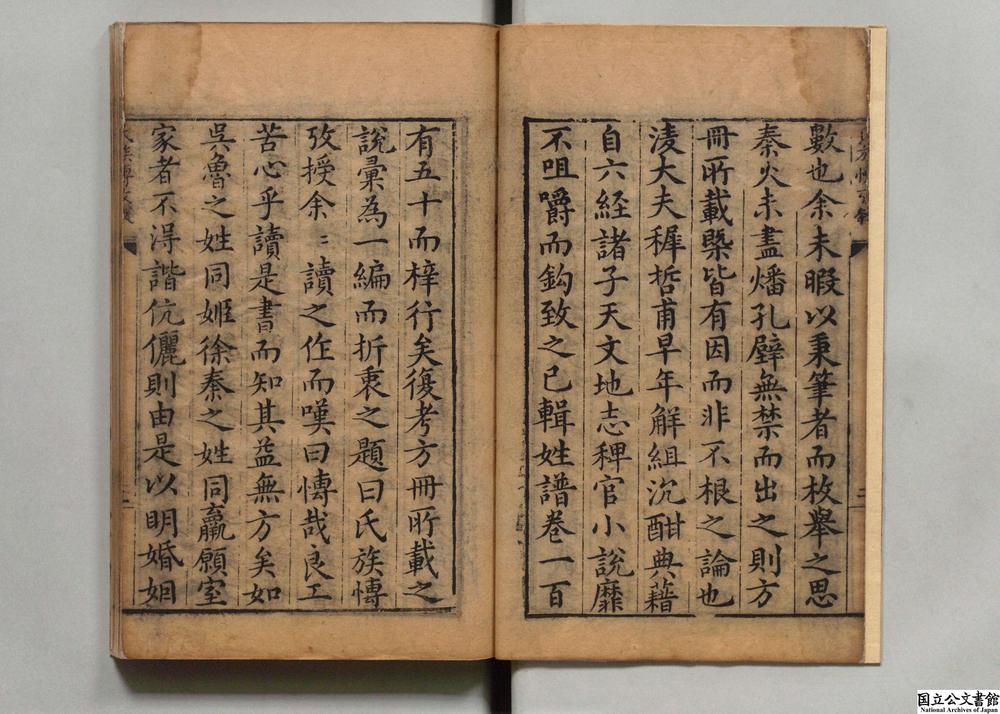 數也余未暇以秉筆者而枚舉之思
秦火未盡燔孔壁無禁而出之則方
冊所載槩皆有因而非不根之論也
淩大夫穉哲甫早年解組沉酣典藉
自六経諸子天文地志稗官小說靡
不咀嚼而鈎致之已輯姓譜卷一百
有五十而梓行矣復考方冊所載之
說彙為一編而折衷之題曰氏族愽
攷授余〻讀之作而嘆曰愽哉良工
苦心乎讀是書而知其益無方矣如
吳魯之姓同姬徐秦之姓同嬴願室
家者不淂諧伉儷則由是以明婚姻
二
二
国立公文書館
National Archives of Japan